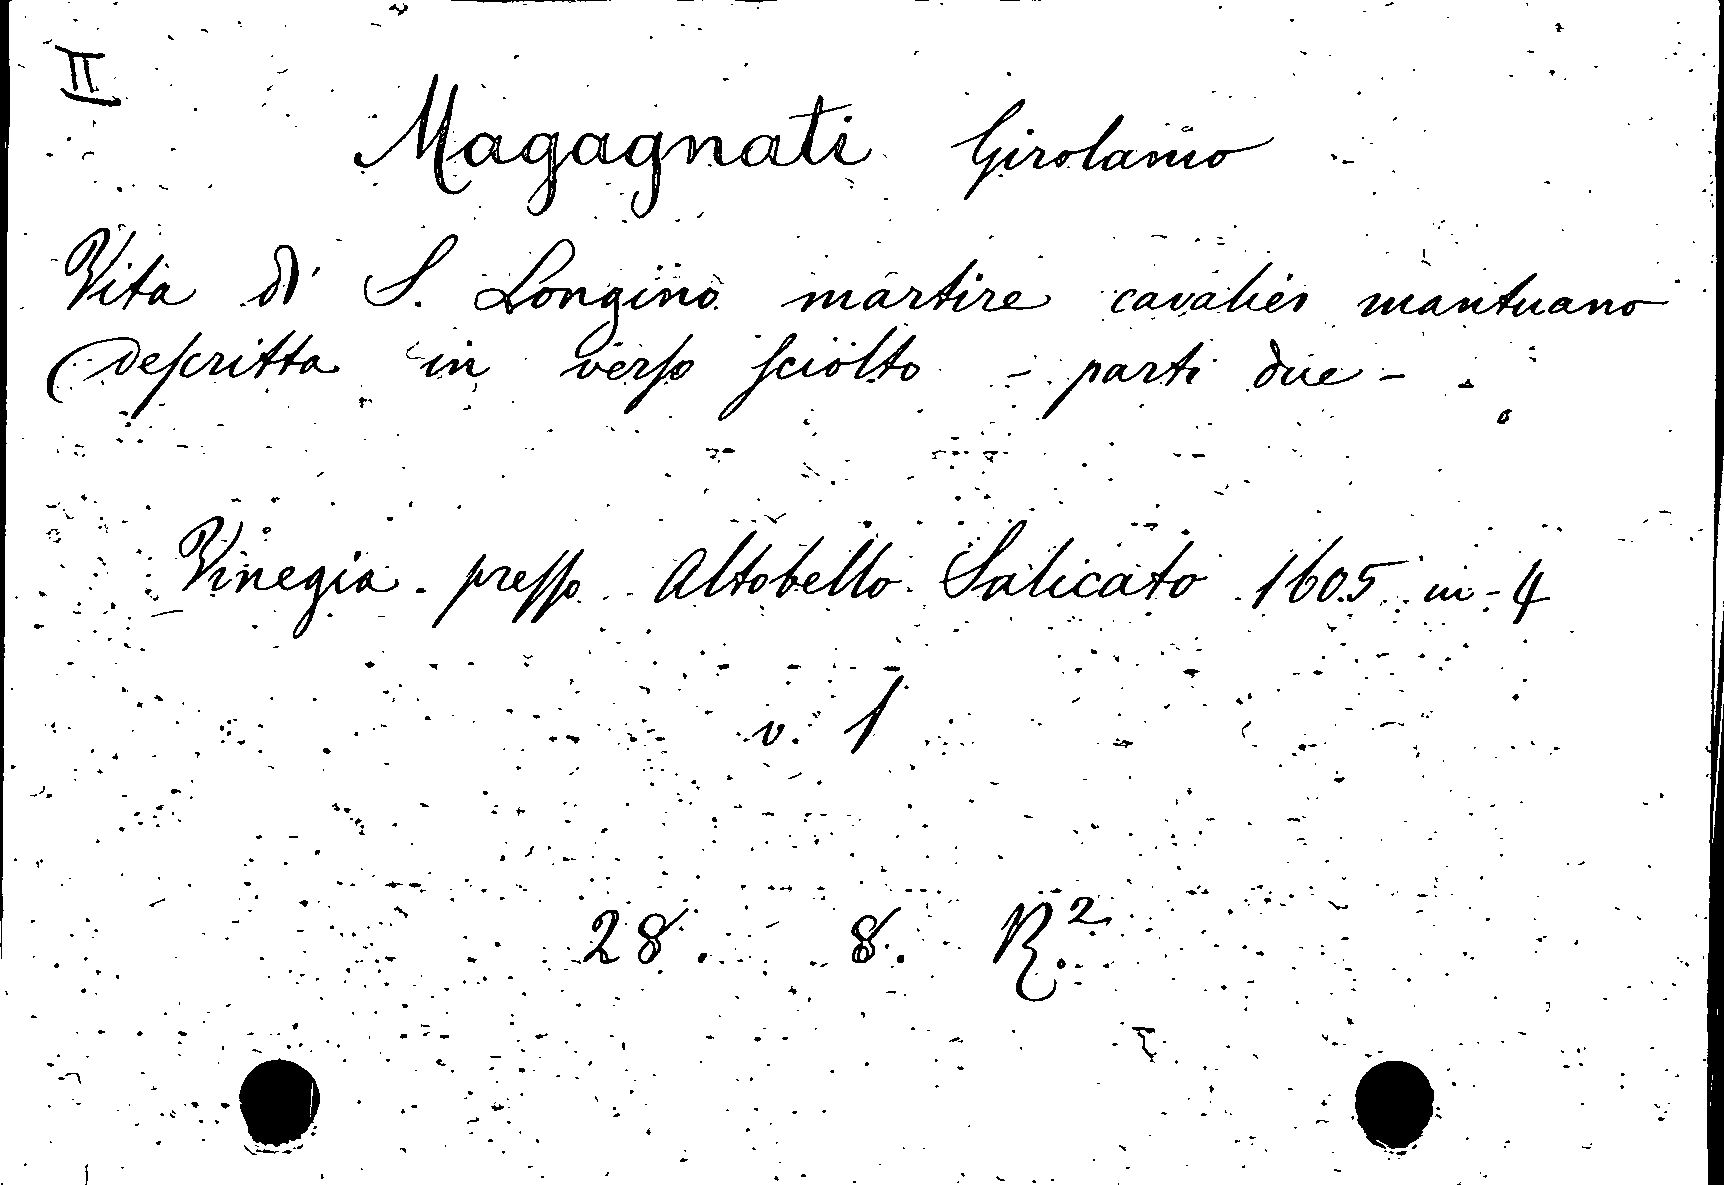 II
Magagnati Girolamo
Vita di S. Longino martire cavalier mantuano
descritta in verso sciolto - parti due -
Vinegia. presso Altobello Salicato 1605 in-4
v. 1
28. 8. R.2